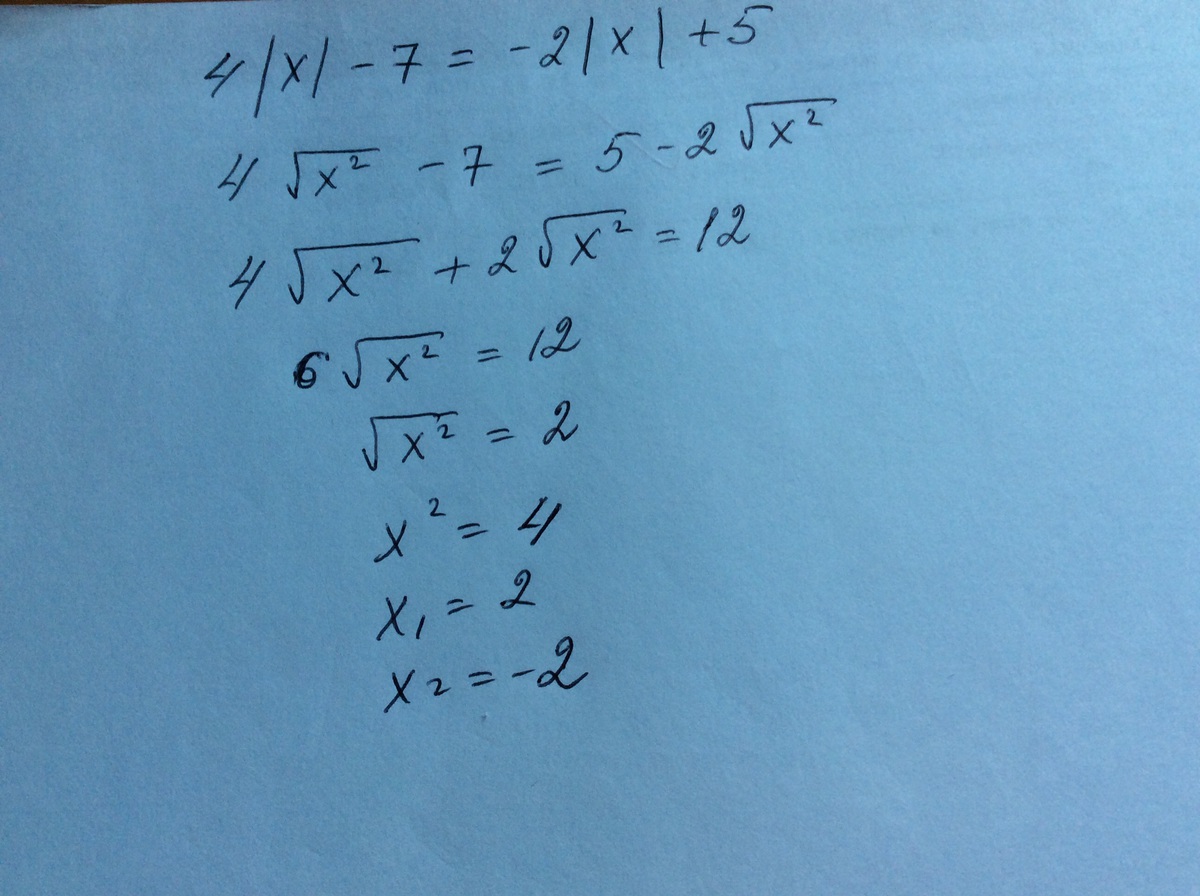 4|x| - 7 = -2|x| + 5
4√x² - 7 = 5 - 2√x²
4√x² + 2√x² = 12
6√x² = 12
√x² = 2
x² = 4
x₁ = 2
x₂ = -2